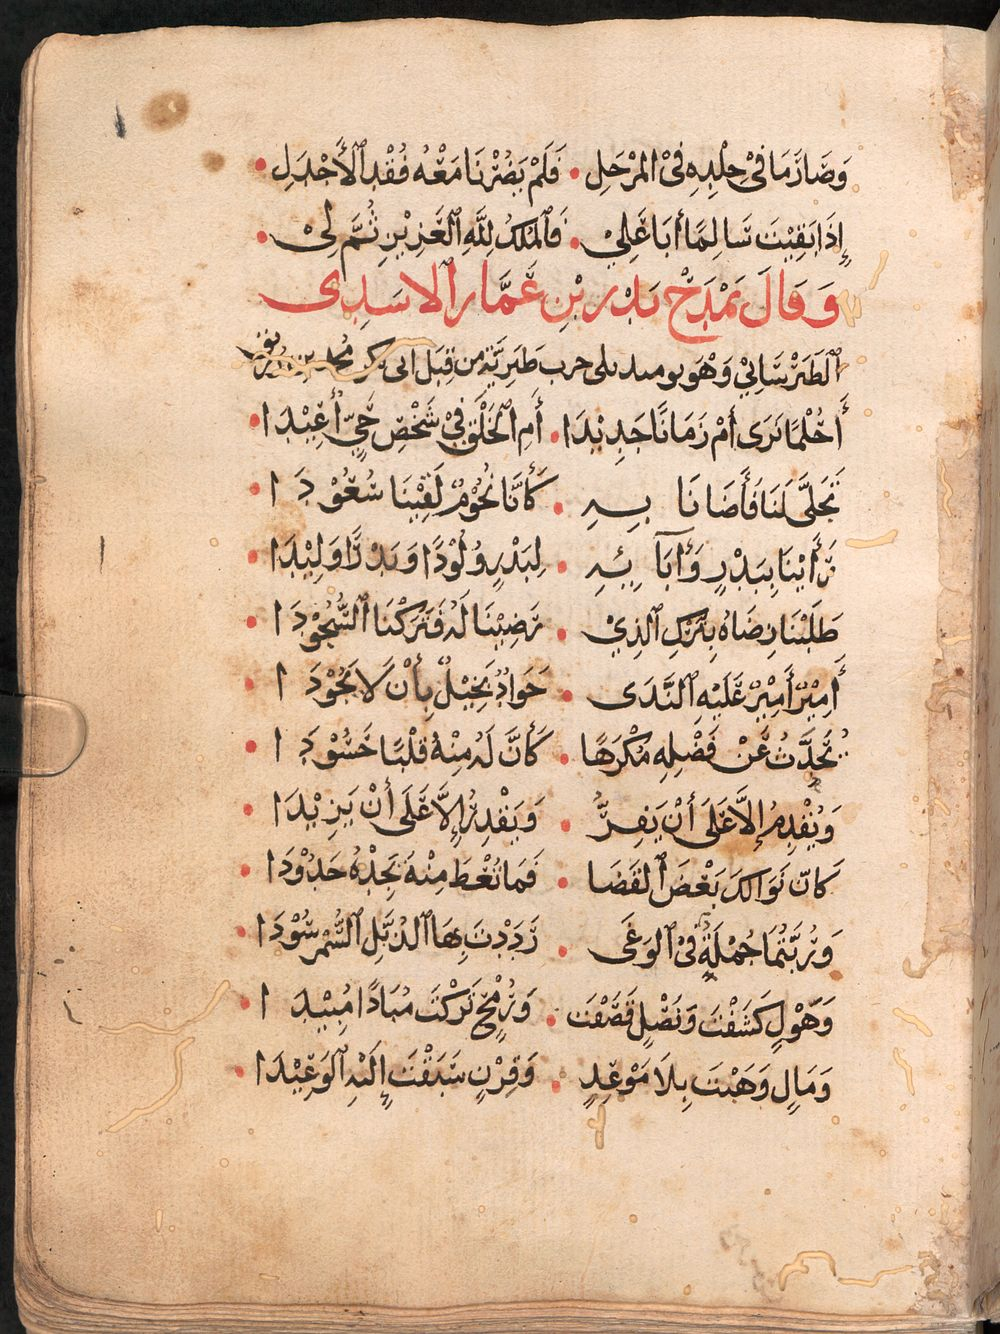 وَصَارَ مَا فِيْ جِلْدِهِ فِيْ المِرْجَلِ • فَلَمْ يَضُرْنَا مَعْهُ فُقْدُ الأَجْدَلِ •
إِذَا بَقِيْتَ سَالِمًا أَبَا عَلِيْ • فَالمُلْكُ لِلَّهِ العَزِيْزِ ثُمَّ لِيْ •
وَقَالَ يَمْدَحُ بَدْرَ بْنِ عَمَّارٍ الاسَدِى
الطَبَرْسَتَانِيْ وَهْوَ يومىد يلى حرب طَبَرِيَّة من قِبَل ابى بكر محمد بن رايق
أَحُلْمًا نَرَى أَمْ زَمَانًا جَدِيْدَا • أَمِ الخَلْقُ فِيْ شَخْصِ حَيٍّ أُعِيْدَا •
تَجَلَّى لَنَا فَأَضَانَا بِهِ • كَأَنَّا نُجُوْمٌ لَقِيْنَا سُعُوْدَا •
رَأَيْنَا بِبَدْرٍ وَآبَائِهِ • لِبَدْرٍ وَلُوْدًا وَبَدْرًا وَلِيْدَا •
طَلَبْنَا رِضَاهُ بِتَرْكِ الَّذِيْ • رَضِيْنَا لَهُ فَتَرَكْنَا السُّجُوْدَا •
أَمِيْرٌ أَمِيْرٌ عَلَيْهِ النَّدَى • جَوَادٌ بَخِيْلٌ بِأَنْ لَا يَجُوْدَا •
يُحَدَّثُ عَنْ فَضْلِهِ مُكْرَهًا • كَأَنَّ لَهُ مِنْهُ قَلْبًا حَسُوْدَا •
وَيُقْدِمُ إِلَّا عَلَى أَنْ يَفِرَّ • وَيَقْدِرُ إِلَّا عَلَى أَنْ يَزِيْدَا •
كَانَّ نَوَالَكَ بَعْضُ القَضَا • فَمَا تُعْطَ مِنْهُ نَجِدْهُ جُدُوْدَا •
وَرُبَّتُمَا حُمْلَةٍ فِيْ الوَغَى • رَدَدْتَ بِهَا الذُّبَّلَ السُّمْرَ سُوْدَا •
وَهَوْلٍ كَشَفْتَ وَنَصْلٍ قَصَفْتَ • وَرُمْحٍ تَرَكْتَ مُبَادًا مُبِيْدَا •
وَمَالٍ وَهَبْتَ بِلَا مَوْعِدٍ • وَقِرْنٍ سَبَقْتَ إِلَيْهِ الوَعِيْدَا •